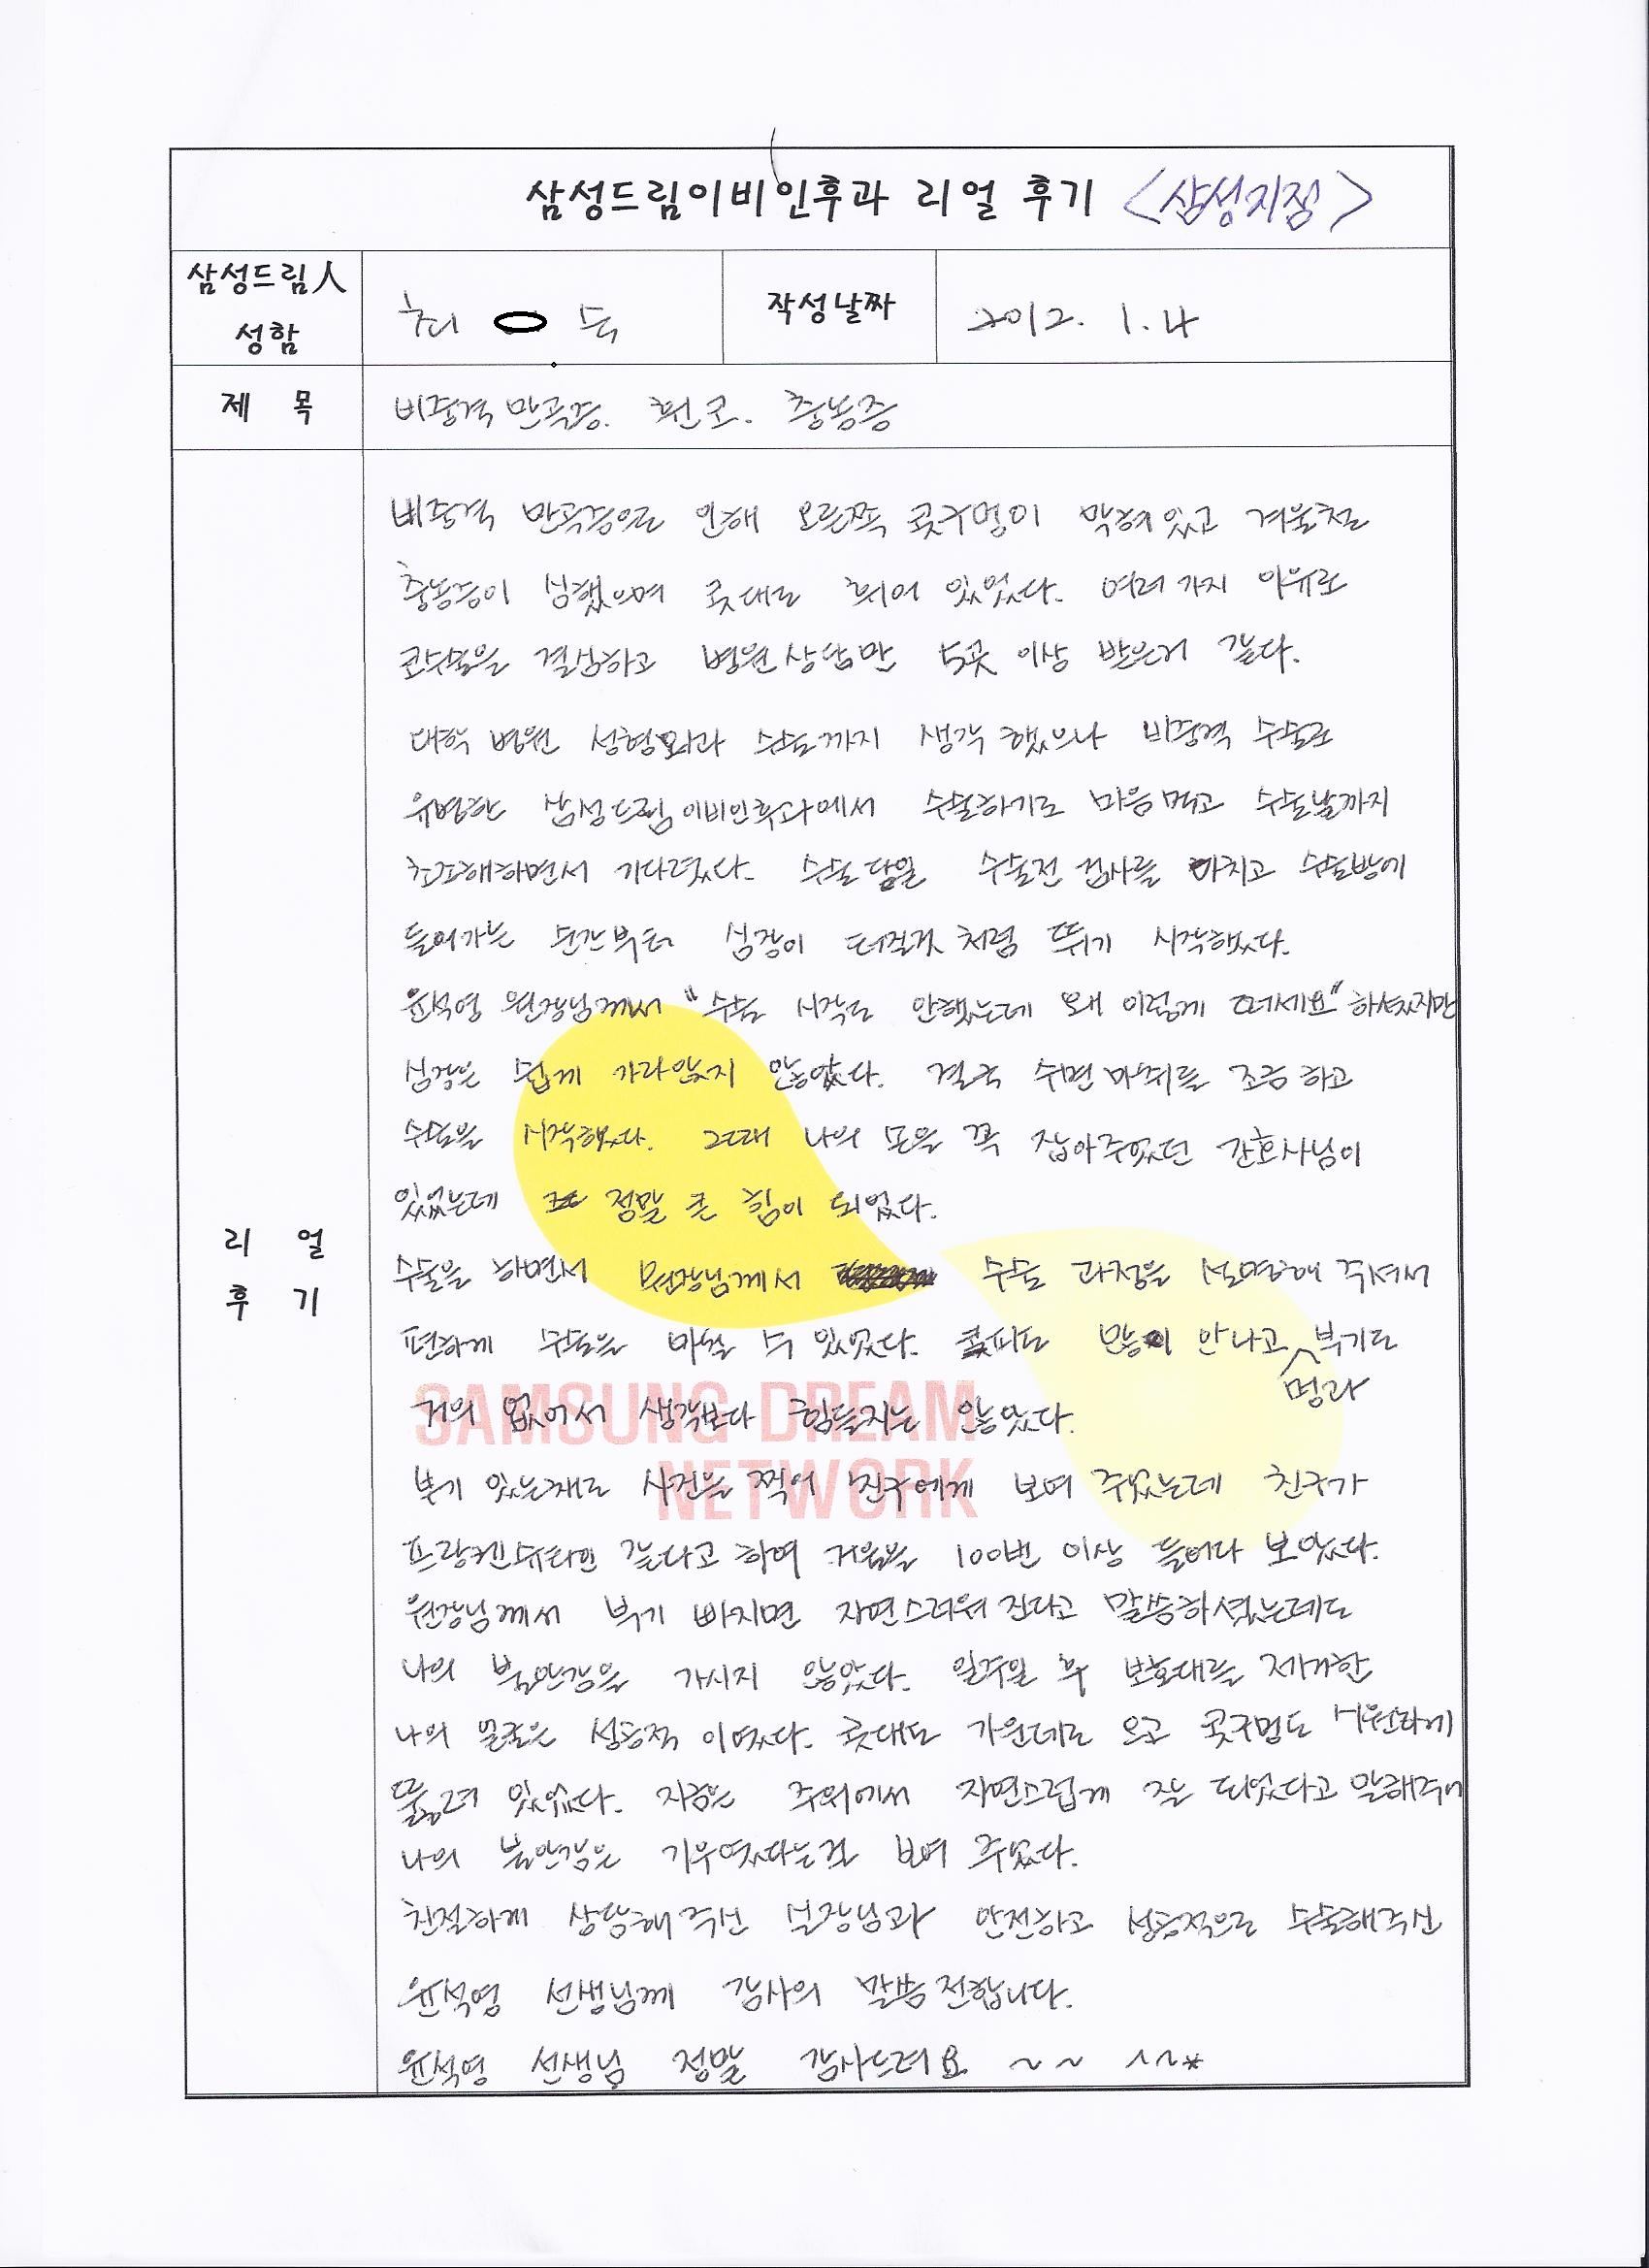 삼성드림이비인후과 리얼 후기 <삼성지점>
삼성드림人
성함
최 득
작성날짜
2012. 1. 4
제 목
비중격 만곡증. 휜 코. 축농증
비중격 만곡증으로 인해 오른쪽 콧구멍이 막혀있고 겨울철
축농증이 심했으며 콧대도 휘어 있었다. 여러가지 이유로
코수술을 결심하고 병원상담만 5곳 이상 받은거 같다.
대학 병원 성형외과 수술까지 생각 했으나 비중격 수술로
유명한 삼성드림이비인후과에서 수술하기로 마음먹고 수술날까지
초조해하면서 기다렸다. 수술 당일 수술전 검사를 마치고 수술방에
들어가는 순간부터 심장이 터질것 처럼 뛰기 시작했다.
윤석영 원장님께서 "수술 시작도 안했는데 왜 이렇게 떠세요" 하셨지만
심장은 쉽게 가라앉지 않았다. 결국 수면마취를 조금 하고
수술을 시작했다. 그때 나의 손을 꼭 잡아주었던 간호사님이
있었는데 정말 큰 힘이 되었다.
수술을 하면서 원장님께서 수술 과정을 설명해 주셔서
편하게 수술을 마칠 수 있었다. 코피도 많이 안나고 멍과 붓기도
거의 없어서 생각보다 힘들지는 않았다.
SAMSUNG DREAM
NETWORK
붓기 있는채로 사진을 찍어 친구에게 보여 주었는데 친구가
프랑켄슈타인 같다고 하여 거울을 100번 이상 들여다 보았다.
원장님께서 붓기 빠지면 자연스러워 진다고 말씀하셨는데도
나의 불안감은 가시지 않았다. 일주일 후 보호대를 제거한
나의 얼굴은 성공적 이였다. 콧대도 가운데로 오고 콧구멍도 시원하게
뚫려 있었다. 지금은 주위에서 자연스럽게 잘 되었다고 말해주어
나의 불안감은 기우였다는걸 보여 주었다.
친절하게 상담해 주신 실장님과 안전하고 성공적으로 수술해주신
윤석영 선생님께 감사의 말씀 전합니다.
윤석영 선생님 정말 감사드려요 ~~ ^^*
리 얼
후 기